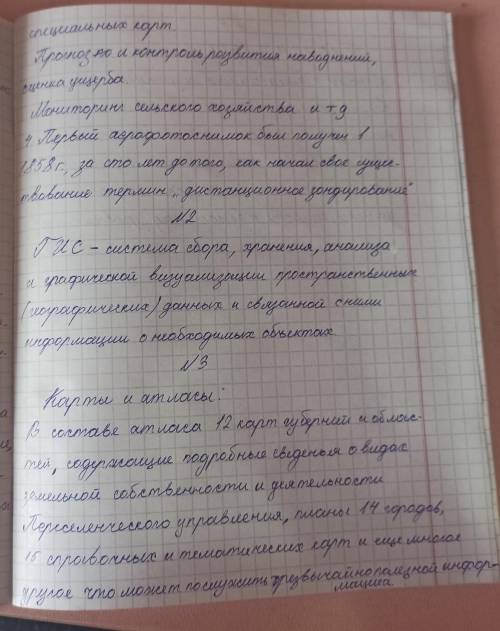 специальных карт.
Прогноз АО и контроль розвития наводнений,
оценка ущерба.
Мониторинг сельского хозяйства и т д
4. Первый аерофотоснимок был получен 1
1858 г., за сто лет до того, как начал свое суще-
ствование термин „дистанционное зондирование"
N2
ГИС – система сбора, хранения, анализа
и графической визуализации пространственных
(географических) данных и связанной с ними
информации о необходимых объектах.
N3
Карты и атласы:
В составе атласа 12 карт губерний и облас-
тей, содержащие подробные сведенья о видах
земельной собственности и деятельности
Переселенческого управления, планы 14 городов,
15 справочных и тематических карт и еще многое
другое что может послужить чрезвычайно полезной инфор-
мация